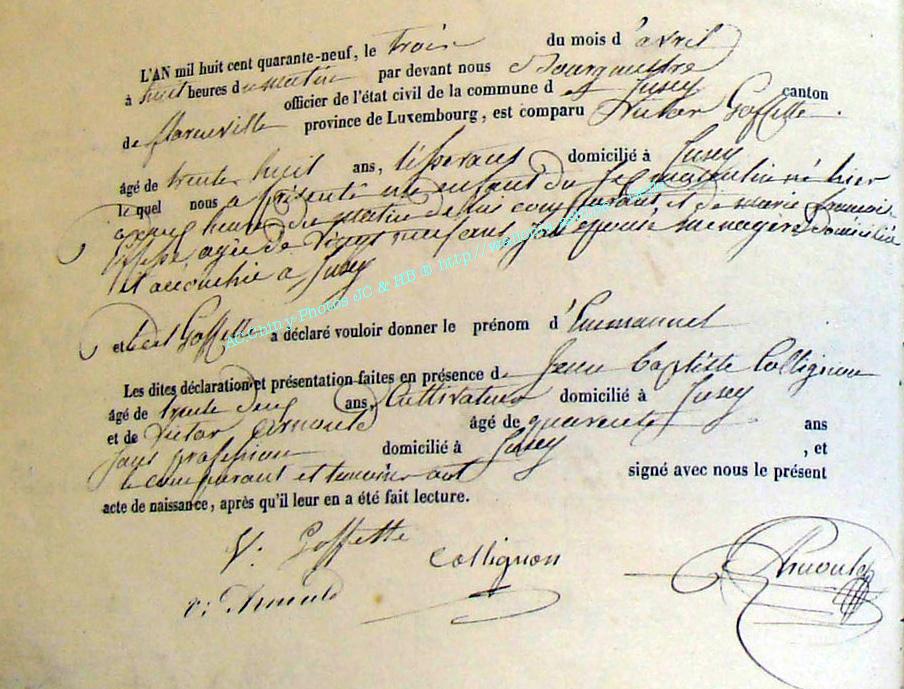 L'AN mil huit cent quarante-neuf, le trois du mois d'avril
à huit heures du matin par devant nous Bourgmestre
officier de l'état civil de la commune de Jusey canton
de florenville province de Luxembourg, est comparu Victor Goffette.
âgé de trente huit ans, tisserans domicilié à Jusey
le quel nous a présenté un enfant du sexe masculin né hier
à cinq heures du matin de lui comparant et de marie
agée de vingt neuf ans, son épouse ménagère Domiciliée
et accouchée à Jusey
et ledit Goffette a déclaré vouloir donner le prénom d'Emmanuel
Les dites déclaration et présentation faites en présence de Jean Baptiste Collignon
âgé de trente deux ans, Cultivateur domicilié à Jusey
et de Victor arnould âgé de quarante ans
sans profession domicilié à Jusey, et
le comparant et temoins ont signé avec nous le présent
acte de naissance, après qu'il leur en a été fait lecture.
V. Goffette
Collignon
v: Arnould
AC Chiny Photos JC & HB ® http://